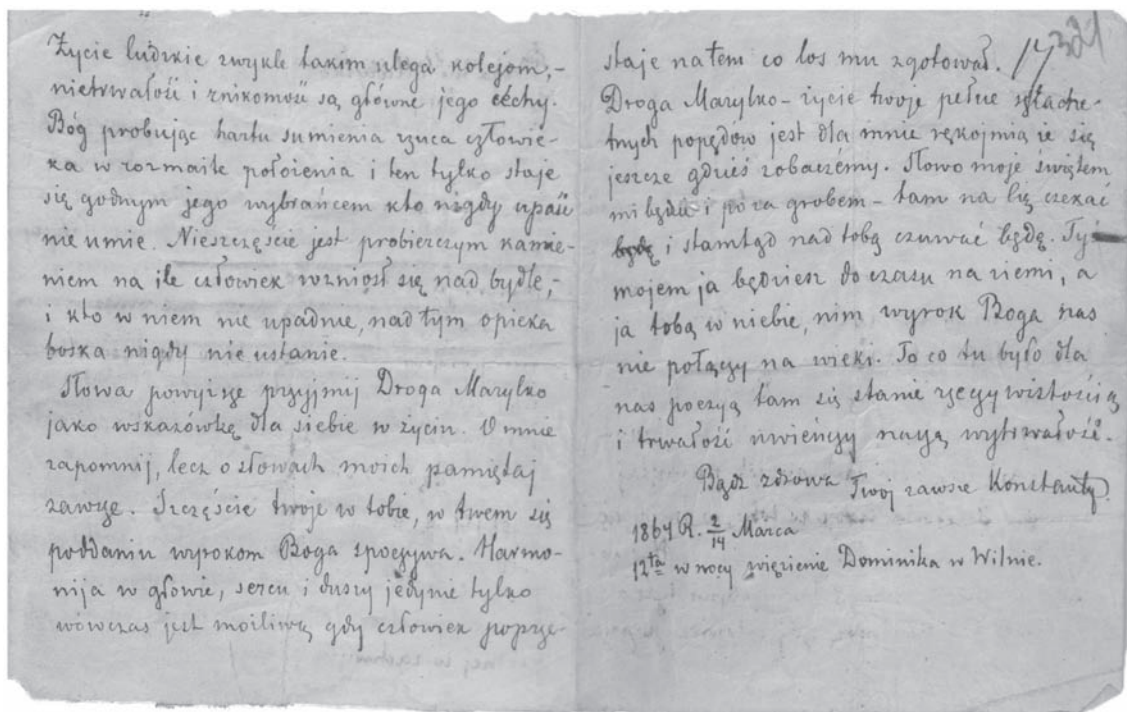 Życie ludzkie zwykle takim ulega kolejom,-
nietrwałość i znikomość są główne jego cechy.
Bóg probując hartu sumienia rzuca człowie-
ka w rozmaite położenia i ten tylko staje
się godnym jego wybrańcem kto nigdy upaść
nie umie. Nieszczęście jest probierczym kamie-
niem na ile człowiek wzniosł się nad bydle,-
i kto w niem nie upadnie, nad tym opieka
boska nigdy nie ustanie.
Słowa powyższe przyjmij Droga Marylko
jako wskazówkę dla siebie w życiu. O mnie
zapomnij, lecz o słowach moich pamiętaj
zawsze. Szczęście twoje w tobie, w twem się
poddaniu wyrokom Boga spoczywa. Harmo-
nija w głowie, sercu i duszy jedynie tylko
wówczas jest możliwą gdy człowiek poprze-
staje na tem co los mu zgotował. 17
Droga Marylko - życie twoje pełne szlache-
tnych popędów jest dla mnie rękojmią że się
jeszcze gdzieś zobaczémy. Słowo moje swiętem
mi będzie i po za grobem - tam na Cię czekać
będę i stamtąd nad tobą czuwać będę. Ty
mojem ja będziesz do czasu na ziemi, a
ja tobą w niebie, nim wyrok Boga nas
nie połączy na wieki. To co tu było dla
nas poezyą tam się stanie rzeczywistością
i trwałość uwieńczy naszą wytrwałość.
Bądz zdrowa Twoj zawsze Konstanty.
1864 R. 2/14 Marca
12ta w nocy więzienie Dominika w Wilnie.